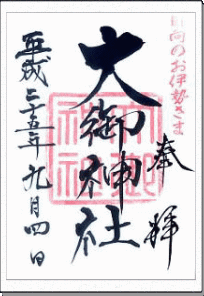 日向のお伊勢さま
奉拝
大御神社
大御神社
平成二十五年九月四日